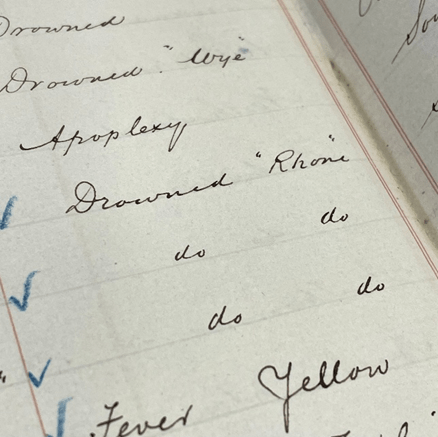 Drowned
Drowned "Wye"
Apoplexy
Drowned "Rhone"
do do
do do
Fever Yellow